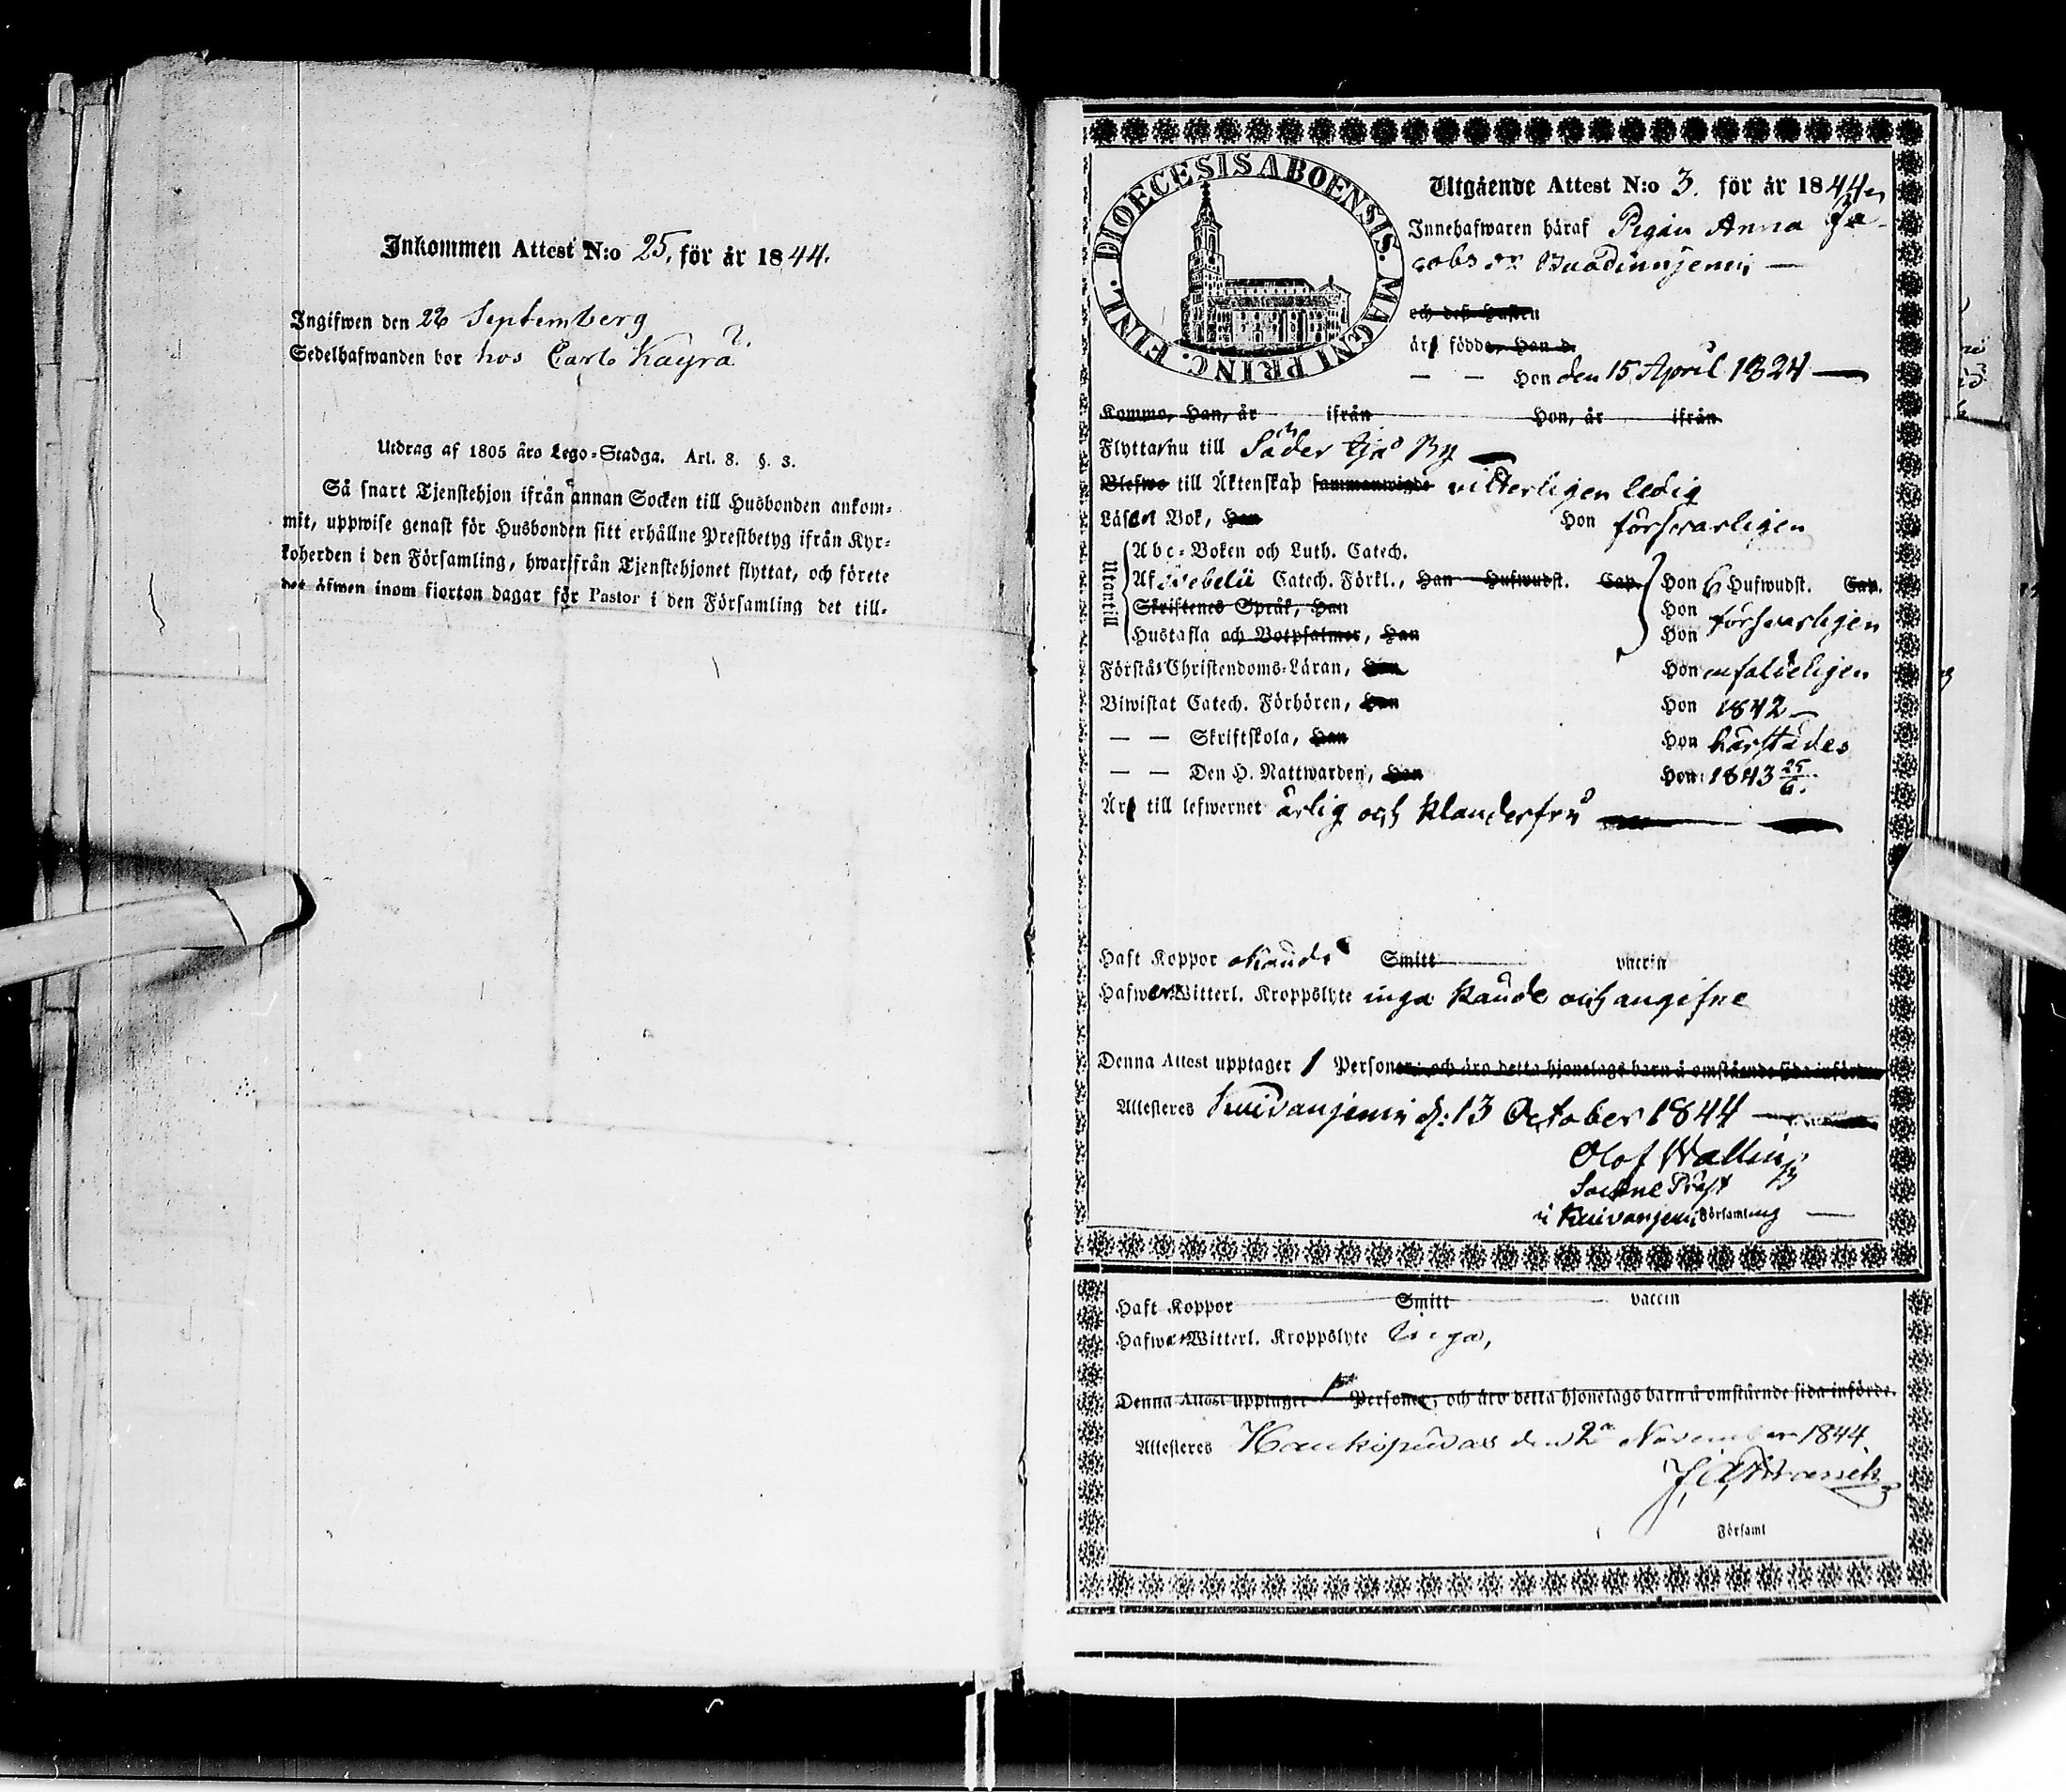 Inkommen Attest N:o 25, för år 1844.
Ingifwen den 22 September
Sedelhafwanden bor hos Carl Käyrä
Utdrag af 1805 års Lego-Stadga. Art. 8. §. 3.
Så snart Tjenstehjon ifrån annan Socken till Husbonden ankom-
mit, uppwise genast för Husbonden sitt erhållne Prestbetyg ifrån Kyr-
koherden i den Församling, hwarifrån Tjenstehjonet flyttat, och förete
det äfwen inom fjorton dagar för Pastor i den Församling det till-
DIOECESIS ABOENSIS. MAGNI PRINC. FINL.
Utgående Attest N:o 3. för år 1844
Innehafwaren häraf Pigan Anna Ja-
cobs dr
och dess Hustru
är född, Han d.
— — Hon den 15 April 1824 —
Kommo, Han, år ifrån Hon, år ifrån
Flyttar nu till By —
Blefwo till Äktenskap sammanwigde witterligen ledig
Läser i Bok, Han Hon försvarligen
Utantill
Abc-Boken och Luth. Catech.
Af Svebelii Catech. Förkl., Han Hufwudst. Cap. Hon 6 Hufwudst. Cap.
Skriftenes Språk, Han Hon försvarligen
Hustafla och Botpsalmer, Han Hon
Förstår Christendoms-Läran, Han Hon enfaldeligen
Biwistat Catech. Förhören, Han Hon 1842 —
— — Skriftskola, Han Hon härstädes
— — Den H. Nattwarden, Han Hon 1843 25/6.
Är till lefwernet ärlig och klanderfri
Haft Koppor okändt Smitt vaccin
Hafwer Witterl. Kroppslyte inga kände och angifne
Denna Attest upptager 1 Personer, och äro detta hjonelags barn å omstående sida införde
Attesteres d: 13 October 1844
Olof Wallin
Sockne Präst
i Församling —
Haft Koppor Smitt vaccin
Hafwer Witterl. Kroppslyte Inga,
Denna Attest upptager 1 Personer, och äro detta hjonelags barn å omstående sida införde.
Attesteres Haukipudas den 2 November 1844
Församl